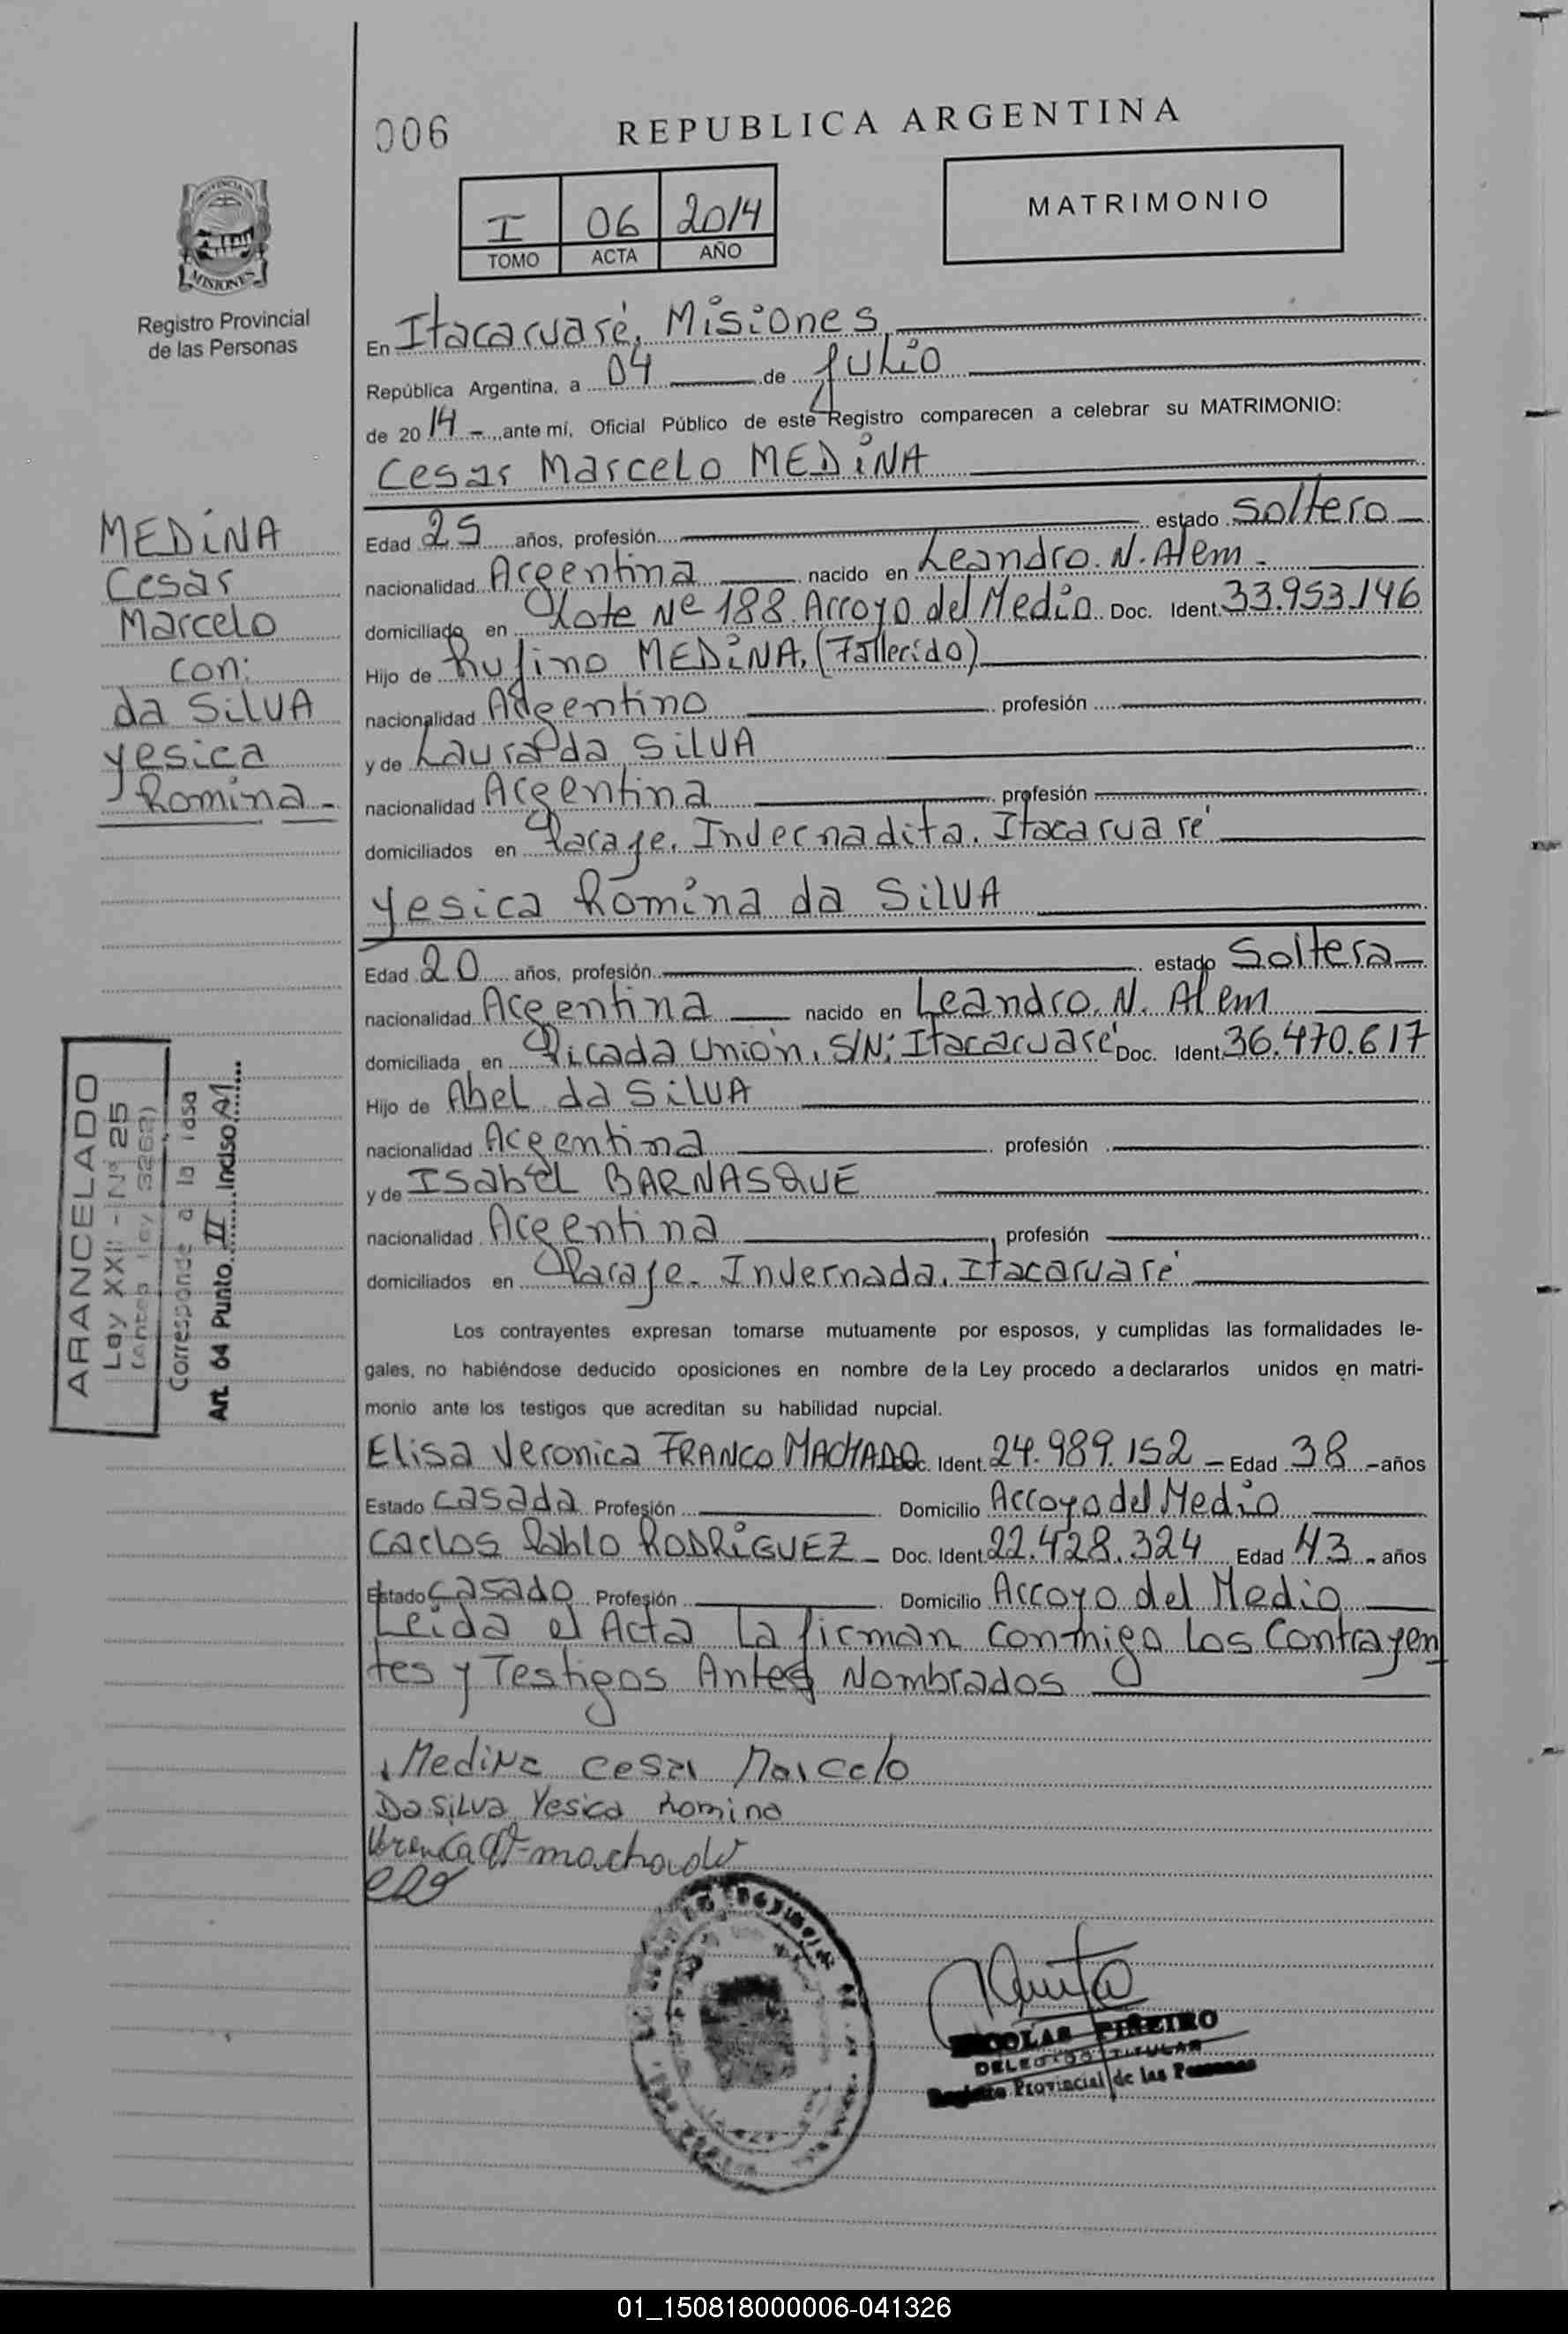 006
REPUBLICA ARGENTINA
I 06 2014
TOMO ACTA AÑO
MATRIMONIO
MISIONES
Registro Provincial
de las Personas
En Itacaruaré, Misiones
República Argentina, a 04 de Julio
de 2014 - ante mí, Oficial Público de este Registro comparecen a celebrar su MATRIMONIO:
Cesar Marcelo MEDINA
MEDINA
Cesar
Marcelo
con:
da SILVA
Yesica
Romina -
Edad 25 años, profesión estado Soltero
nacionalidad Argentina nacido en Leandro. N. Alem -
domiciliado en Lote Nº 188. Arroyo del Medio Doc. Ident. 33.953.146
Hijo de Rufino MEDINA, (Fallecido)
nacionalidad Argentino profesión
y de Laura da SILVA
nacionalidad Argentina profesión
domiciliados en Paraje. Invernadita. Itacaruaré
Yesica Romina da SILVA
Edad 20 años, profesión estado Soltera
nacionalidad Argentina nacido en Leandro. N. Alem
domiciliada en Picada Unión, S/N; Itacaruaré Doc. Ident. 36.470.617
Hijo de Abel da SILVA
nacionalidad Argentina profesión
y de Isabel BARNASQUE
nacionalidad Argentina profesión
domiciliados en Paraje - Invernada. Itacaruaré
ARANCELADO
Ley XXII - Nº 25
(Antes Ley 3262)
Corresponde a la Tasa
Art. 64 Punto II Inciso A1
Los contrayentes expresan tomarse mutuamente por esposos, y cumplidas las formalidades le-
gales, no habiéndose deducido oposiciones en nombre de la Ley procedo a declararlos unidos en matri-
monio ante los testigos que acreditan su habilidad nupcial.
Elisa Veronica FRANCO MACHADO Doc. Ident. 24.989.152 - Edad 38 - años
Estado casada Profesión Domicilio Arroyo del Medio
Carlos Pablo RODRIGUEZ - Doc. Ident. 22.428.324 Edad 43 - años
Estado casado Profesión Domicilio Arroyo del Medio
Leida el Acta La firman conmigo Los Contrayen
tes y Testigos Antes Nombrados
Medina Cesar Marcelo
Da Silva Yesica Romina
machado
PIÑEIRO
DELEGADO TITULAR
Registro Provincial de las Personas
01_150818000006-041326